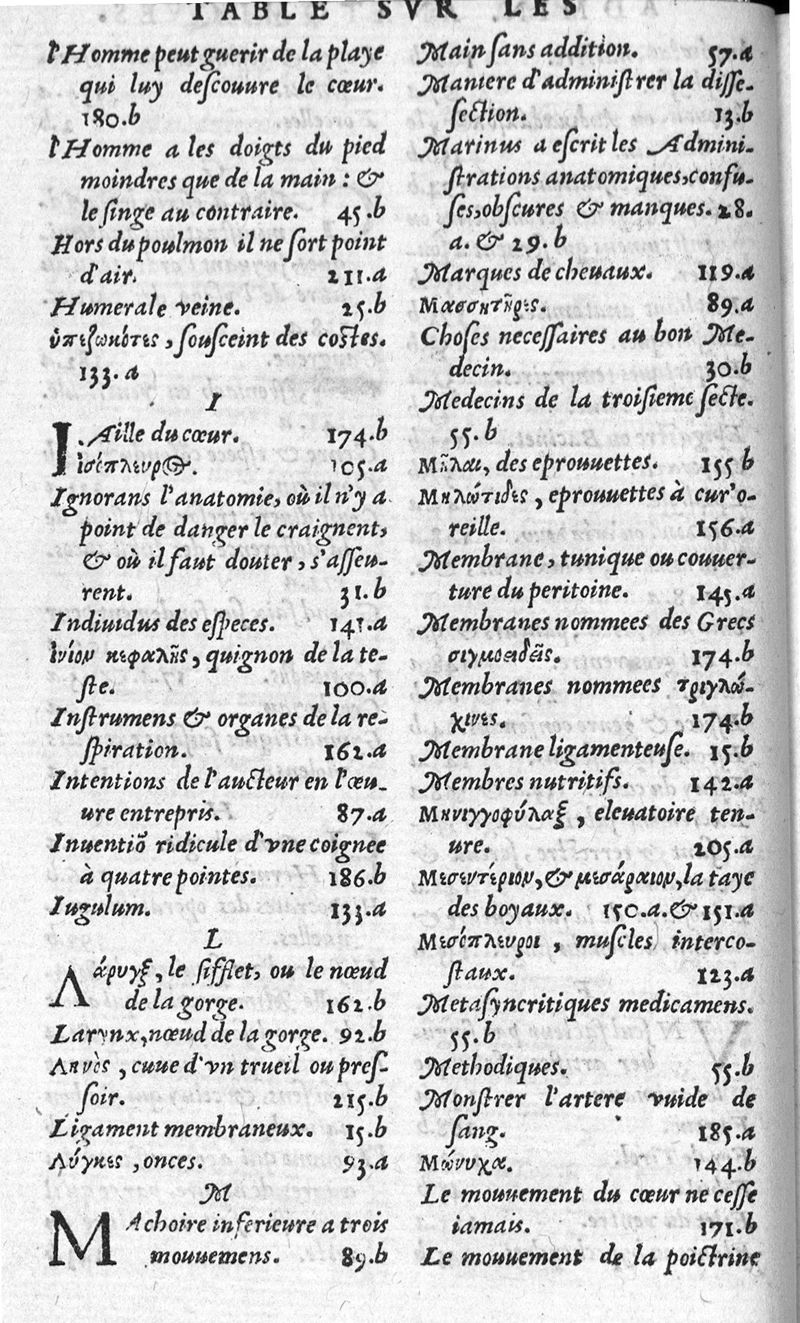 TABLE SVR LES
l'Homme peut guerir de la playe
qui luy descouure le cœur.
180.b
l'Homme a les doigts du pied
moindres que de la main : &
le singe au contraire. 45.b
Hors du poulmon il ne sort point
d'air. 211.a
Humerale veine. 25.b
ὑπεζωκότες, sousceint des costes.
133.a
I
I.Aille du cœur. 174.b
ἰσόπλευρος. 105.a
Ignorans l'anatomie, où il n'y a
point de danger le craignent,
& où il faut douter, s'asseu-
rent. 31.b
Indiuidus des especes. 141.a
ἰνίον κεφαλῆς, quignon de la te-
ste. 100.a
Instrumens & organes de la re-
spiration. 162.a
Intentions de l'aucteur en l'œu-
ure entrepris. 87.a
Inuentiõ ridicule d'vne coignee
à quatre pointes. 186.b
Iugulum. 133.a
L
Λάρυγξ, le sifflet, ou le nœud
de la gorge. 162.b
Larynx, nœud de la gorge. 92.b
Ληνὸς, cuue d'vn trueil ou pres-
soir. 215.b
Ligament membraneux. 15.b
Λύγκες, onces. 93.a
M
MAchoire inferieure a trois
mouuemens. 89.b
Main sans addition. 57.a
Maniere d'administrer la disse-
section. 13.b
Marinus a escrit les Admini-
strations anatomiques, confu-
ses, obscures & manques. 28.
a. & 29.b
Marques de cheuaux. 119.a
Μασσητῆρες. 89.a
Choses necessaires au bon Me-
decin. 30.b
Medecins de la troisieme secte.
55.b
Μῆλαι, des eprouuettes. 155 b
Μηλώτιδες, eprouuettes à cur'o-
reille. 156.a
Membrane, tunique ou couuer-
ture du peritoine. 145.a
Membranes nommees des Grecs
σιγμοειδεῖς. 174.b
Membranes nommees τριγλώ-
χινες. 174.b
Membrane ligamenteuse. 15.b
Membres nutritifs. 142.a
Μηνιγγοφύλαξ, eleuatoire ten-
ure. 205.a
Μεσεντέριον, & μεσάραιον, la taye
des boyaux. 150.a. & 151.a
Μεσόπλευροι, muscles interco-
staux. 123.a
Metasyncritiques medicamens.
55.b
Methodiques. 55.b
Monstrer l'artere vuide de
sang. 185.a
Μώνυχα. 144.b
Le mouuement du cœur ne cesse
iamais. 171.b
Le mouuement de la poictrine